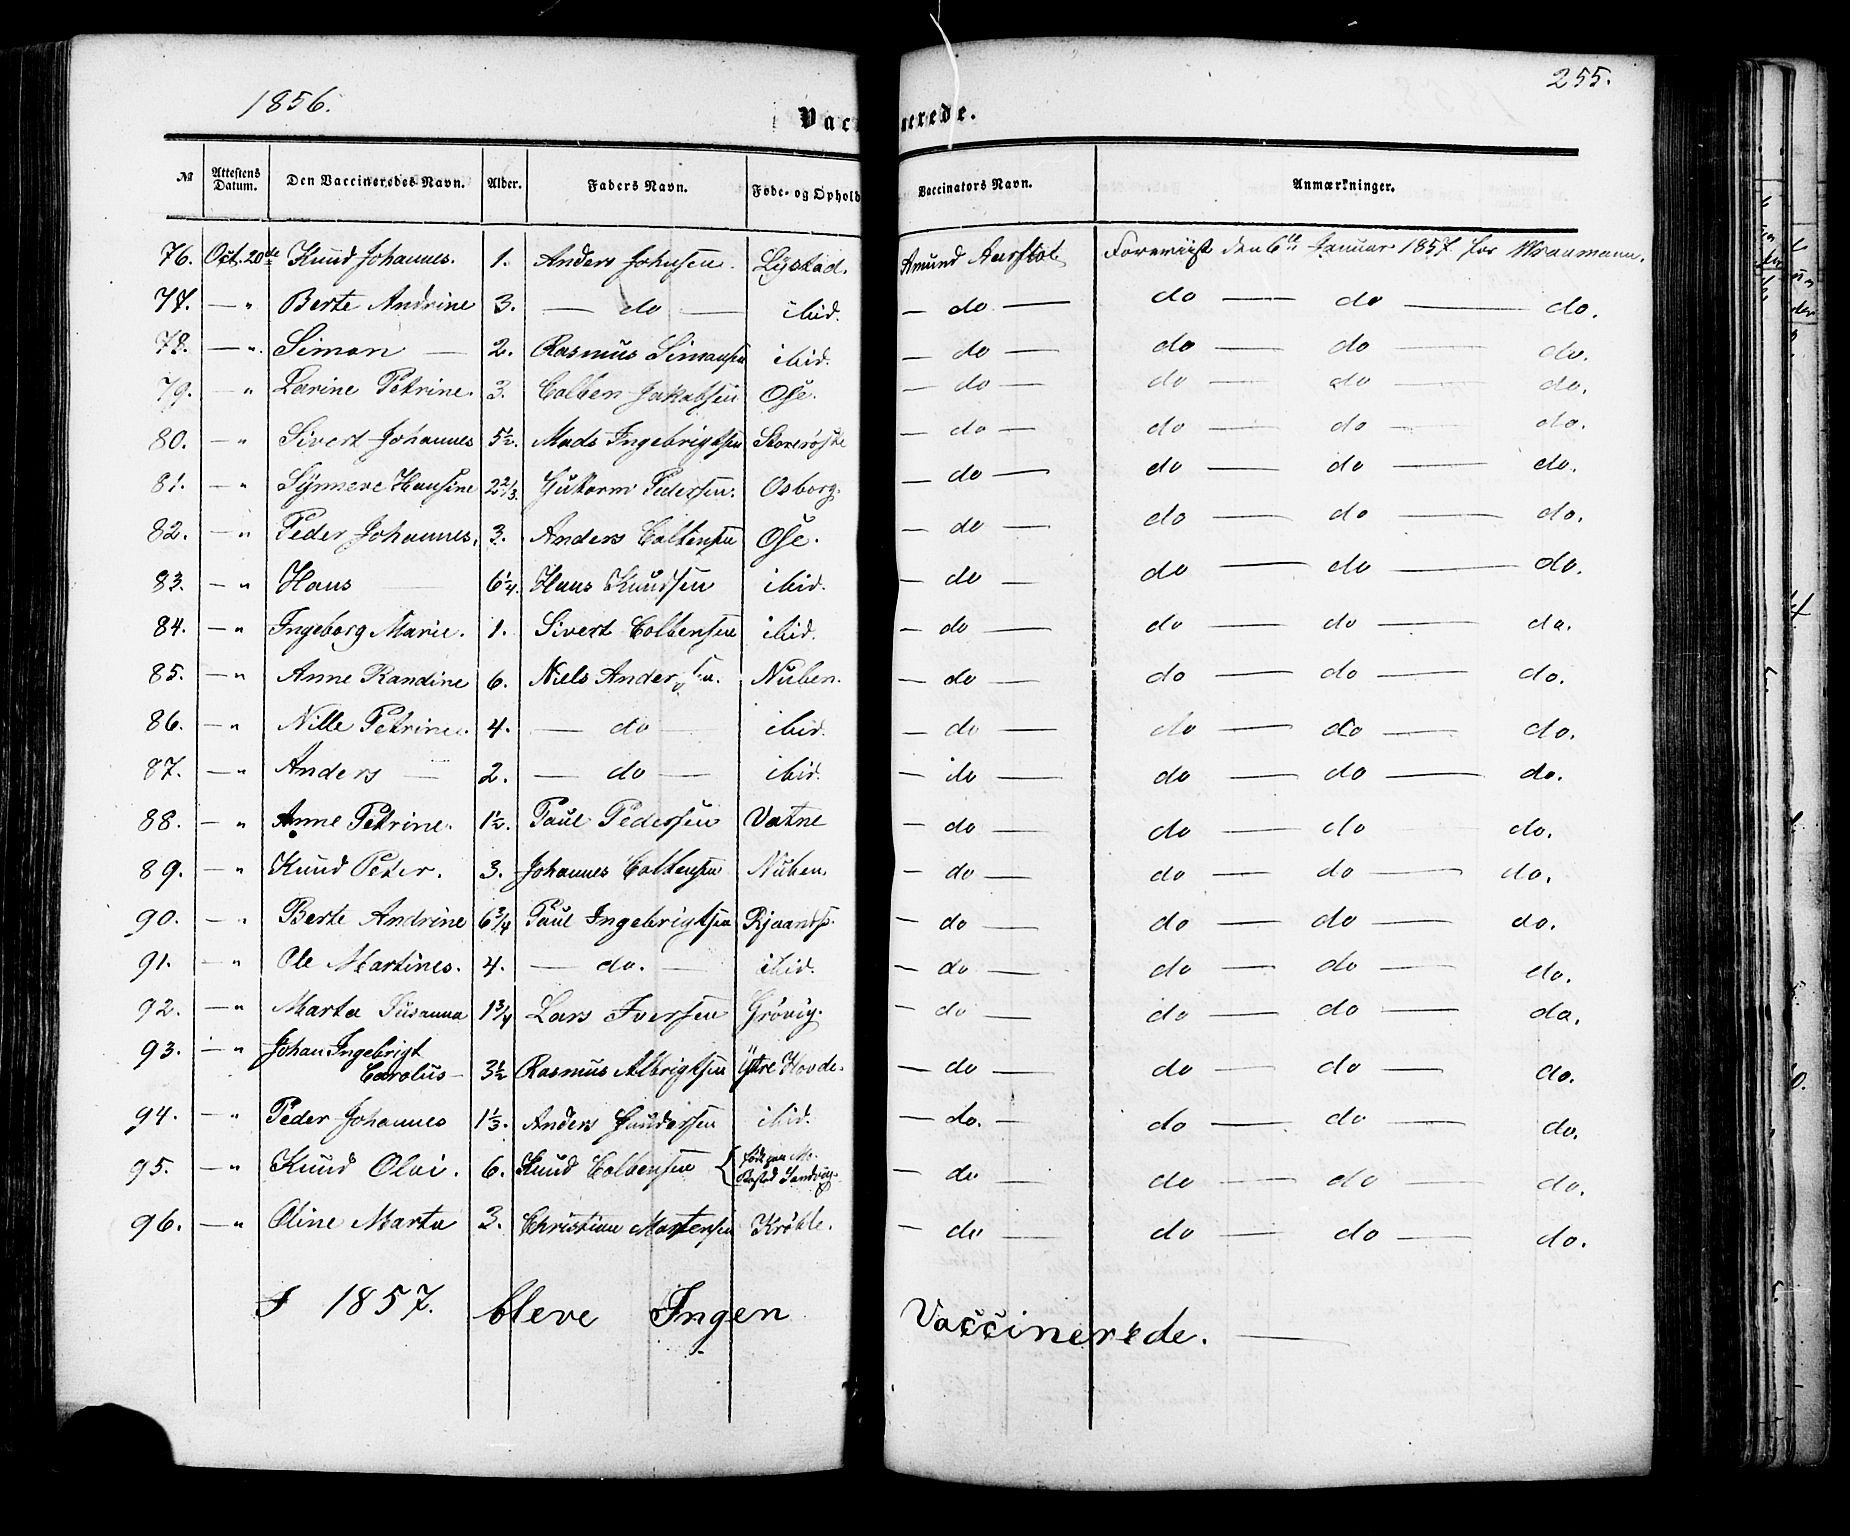 1856.
255.
Vaccinerede.
№ Attestens Datum. Den Vaccineredes Navn. Alder. Faders Navn. Føde- og Ophold Vaccinators Navn. Anmærkninger.
76. Oct. 20de Knud Johannes. 1. Anders Johnsen. Lystad. Amund Aurstøl Foreviist den 6te Januar 1857 for
77. — " Berte Andrine 3. — do — ibid. — do — do — do — do.
78. — " Simon — 2. Rasmus Simonsen ibid. — do — do — do — do.
79. — " Larine Petrine. 3. Colben Jakobsen Ose. — do — do — do — do.
80. — " Sivert Johannes 5½. Mads Ingebrigtsen Storerøske — do — do — do — do.
81. — " Synneve Hansine 2 2/3. Gutorm Pedersen. Osborg. — do — do — do — do.
82. — " Peder Johannes. 3. Anders Colbensen Ose. — do — do — do — do.
83. — " Hans — 6¼. Hans Knudsen ibid. — do — do — do — do.
84. — " Ingeborg Marie. 1. Sivert Colbensen ibid. — do — do — do — do.
85. — " Anne Randine 6. Niels Andersen. Nuben. — do — do — do — do.
86. — " Nille Petrine. 4. — do — ibid. — do — do — do — do.
87. — " Anders — 2. — do — ibid. — do — do — do — do.
88. — " Anne Petrine. 1½. Paul Pedersen Vatne — do — do — do — do.
89. — " Knud Peter. 3. Johannes Colbensen Nuben. — do — do — do — do.
90. — " Berte Andrine 6¾ Paul Ingebrigtsen — do — do — do — do.
91. — " Ole Martines. 4. — do. — ibid. — do — do — do — do.
92. — " Marta Susanna 1¾ Lars Iversen Grøvig. — do — do — do — do.
93. — " Johan Ingebrigt
Carolus — 3½ Rasmus Albrigtsen Ytre Hovde. — do — do — do — do.
94. — " Peder Johannes 1⅓. Anders Gundersen ibid. — do. — do — do — do.
95. — " Knud Olai. 6. Knud Colbensen — do — do — do — do.
96. — " Oline Marta 3. Christian Mortensen Krøkle. — do — do — do — do.
I 1857. bleve Ingen Vaccinerede. —